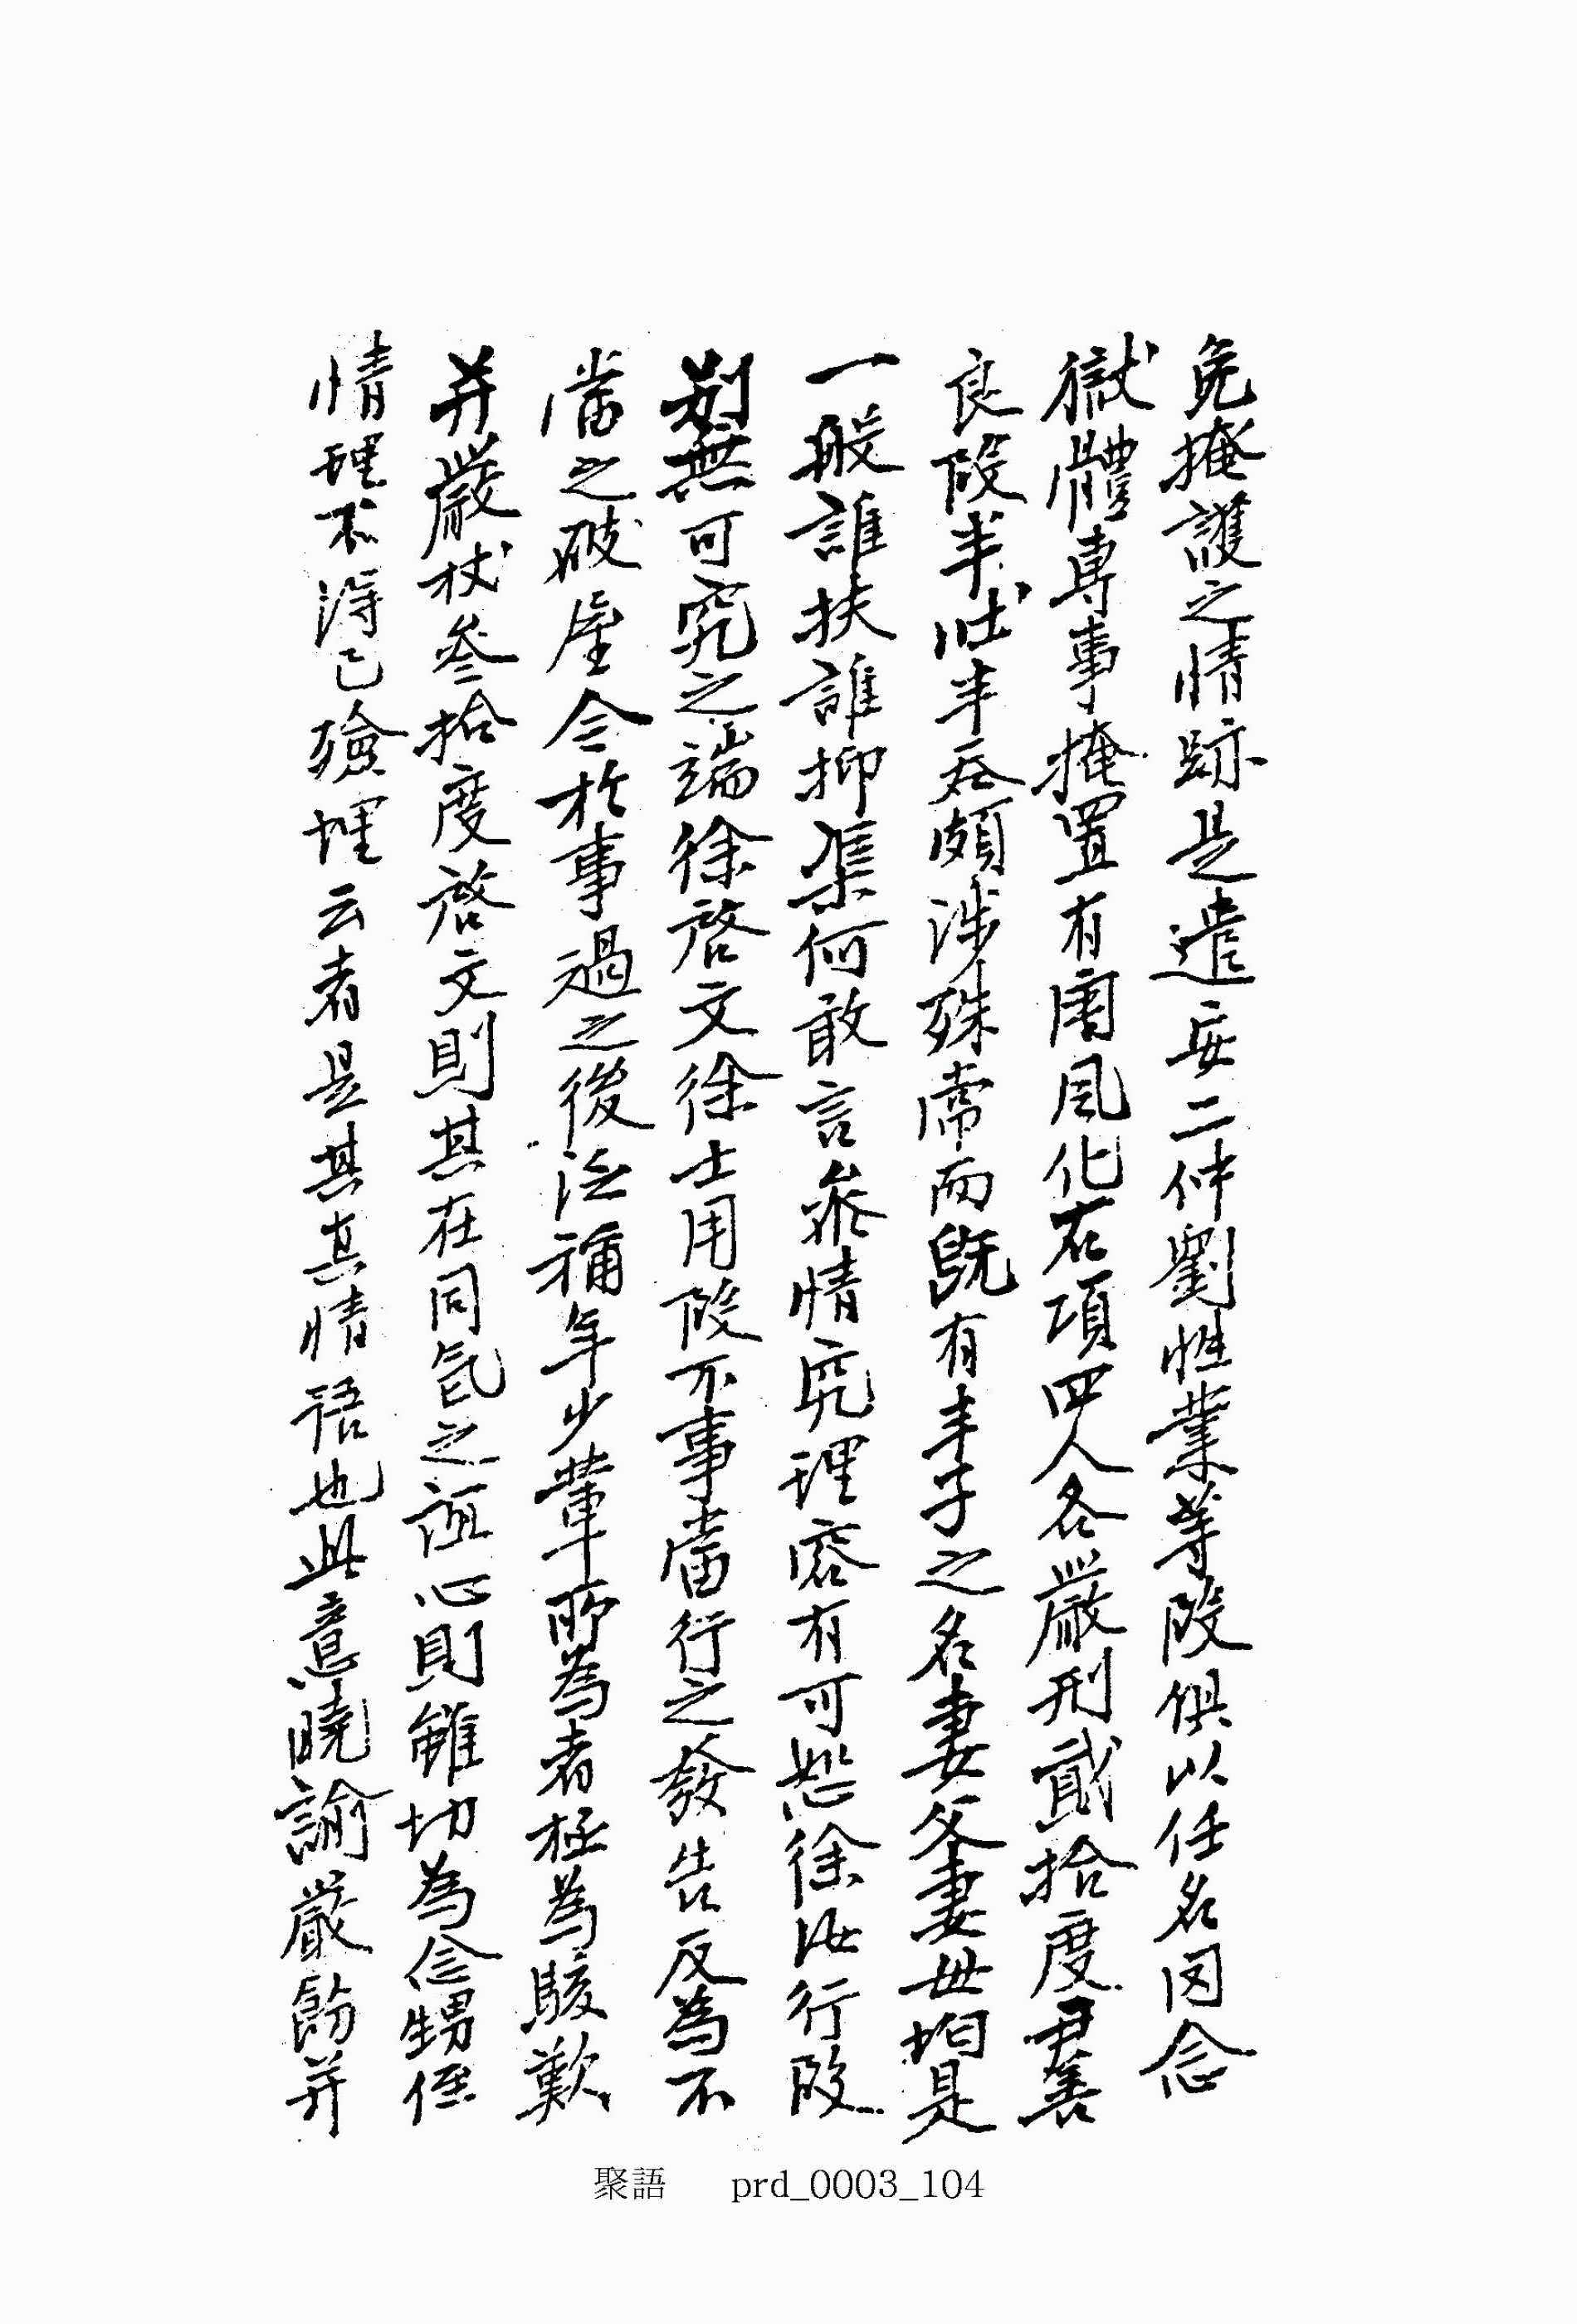 免掩護之情跡是遣安二仲劉性業等段俱以任名罔念
獄體專事掩置有關風化右項四人各嚴刑貳拾度尹善
良段半吐半呑頗涉殊常而旣有半子之名妻父妻母均是
一般誰扶誰抑渠何敢言參情究理容有可恕徐汝行段
別無可究之端徐啓文徐士用段不事當行之發告反爲不
當之破虛今於事過之後泛稱年少輩所爲者極爲駭歎
幷嚴杖叄拾度啓文則其在同氣之誼心則雖切爲念甥侄
情理不得已殮埋云者是其眞情語也此意曉諭嚴飭幷
聚語 prd_0003_104